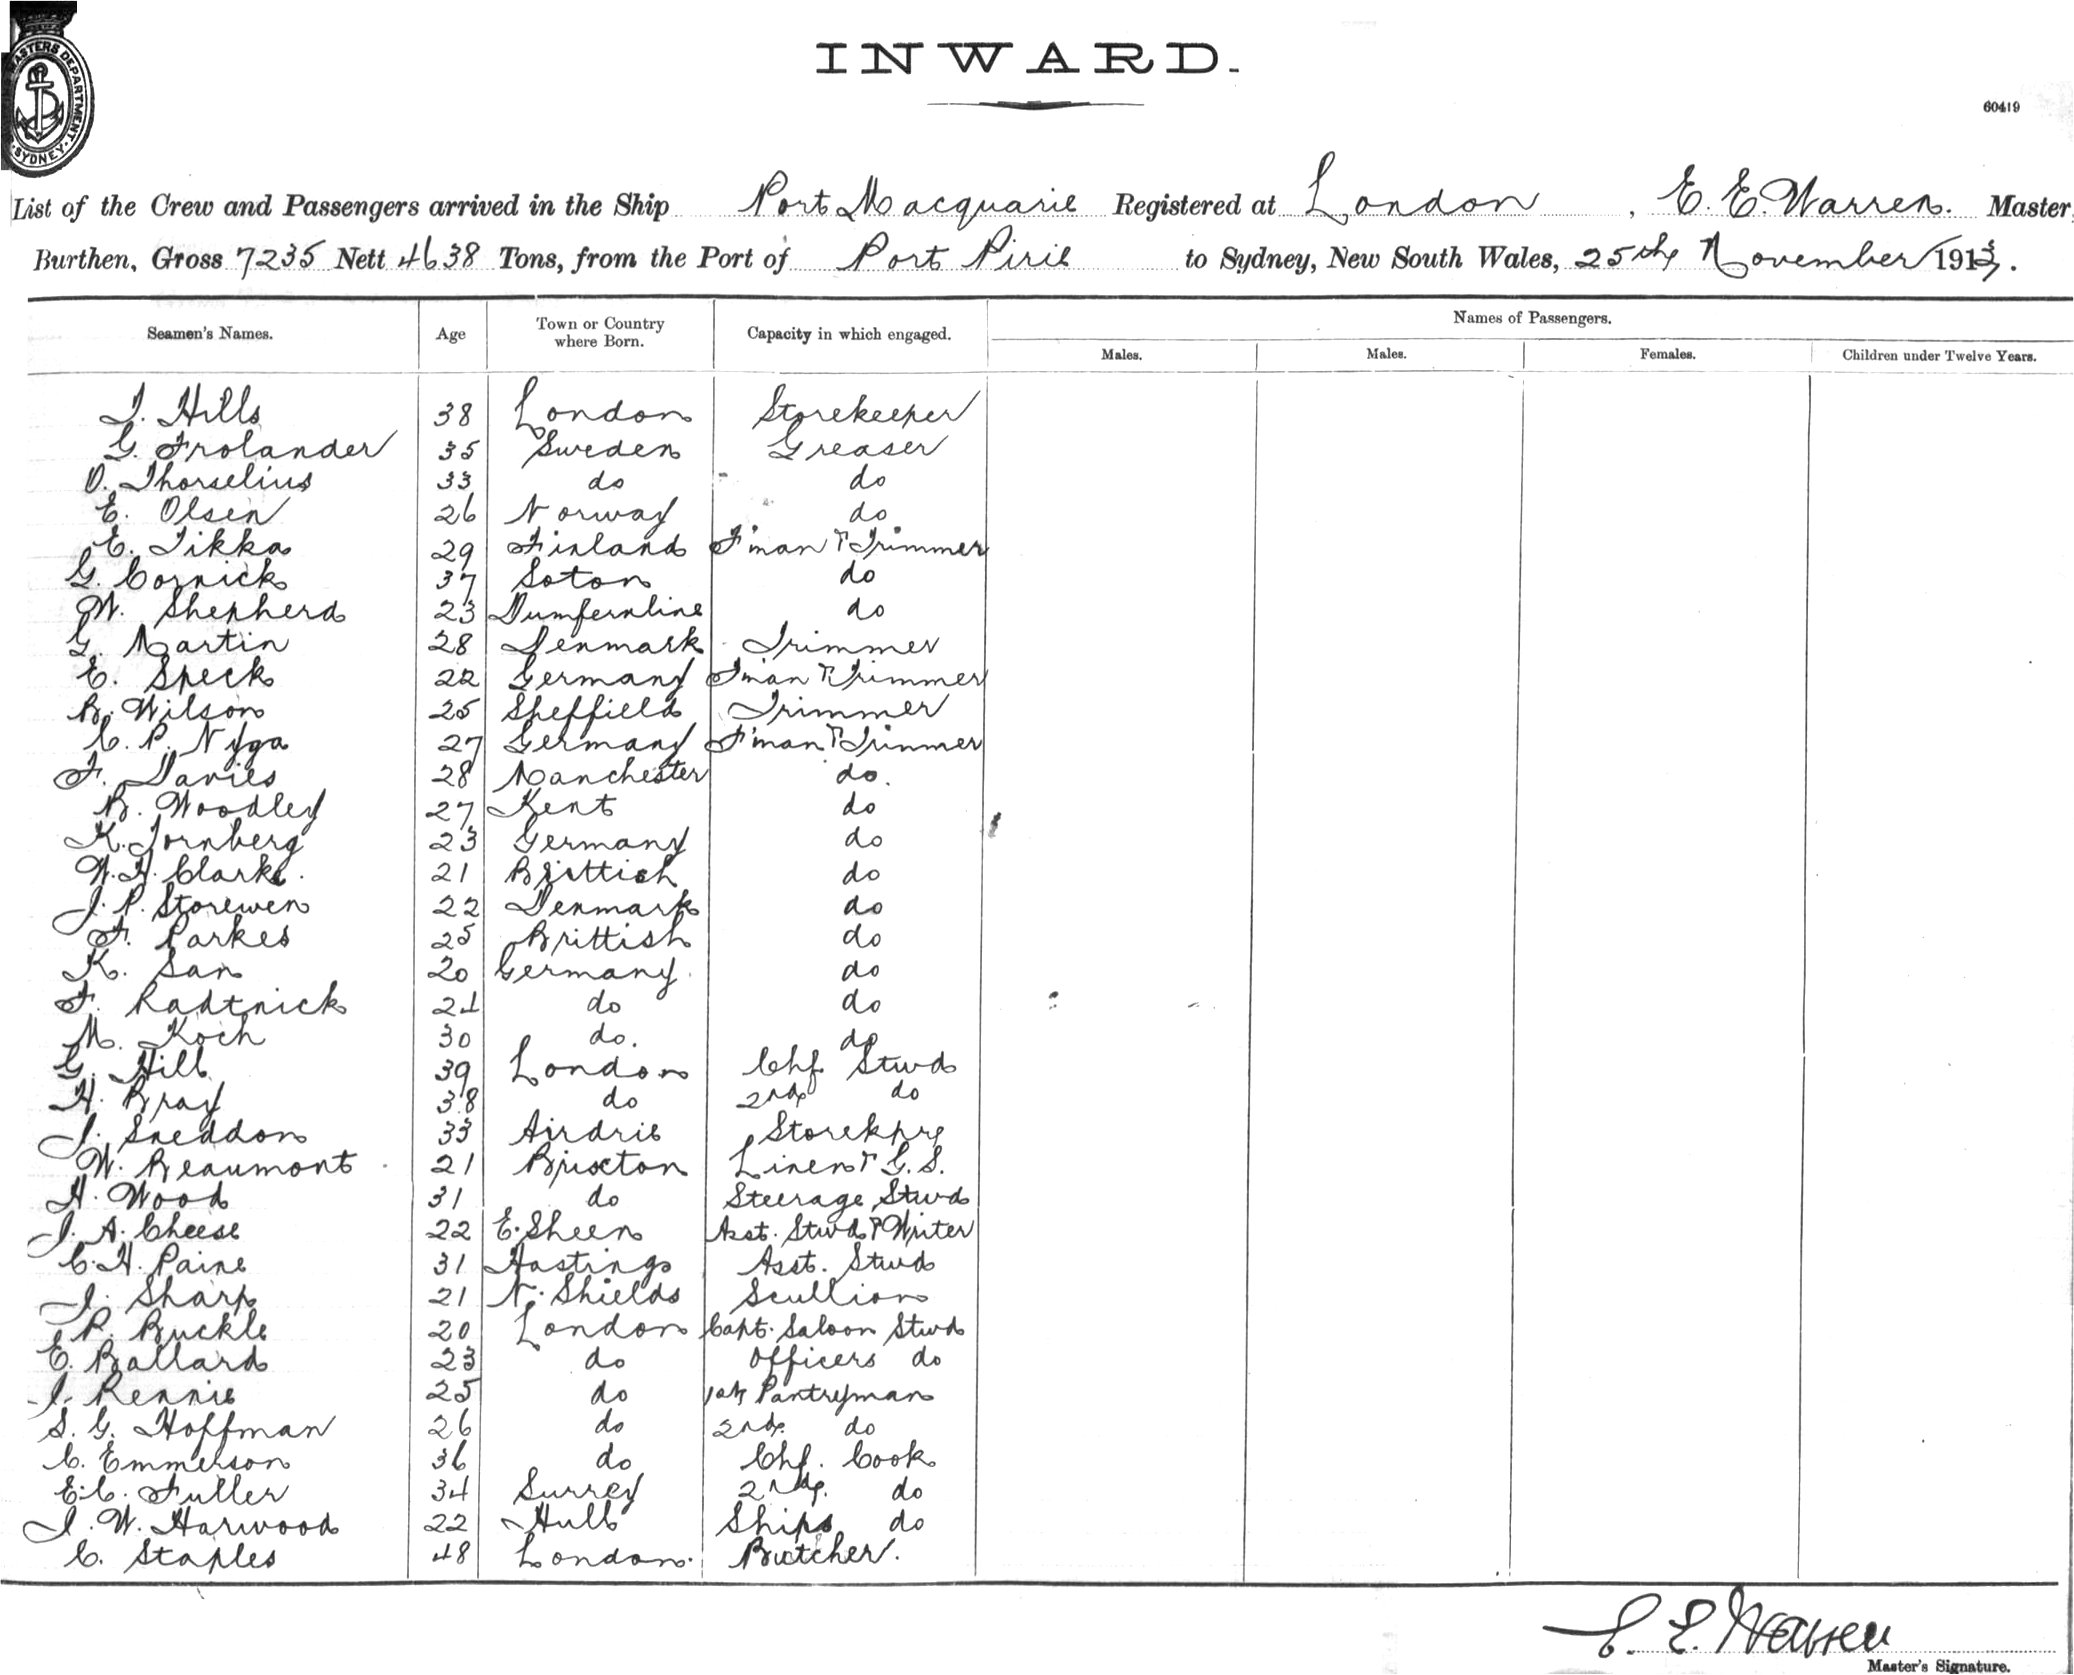 MASTERS DEPARTMENT
SYDNEY
INWARD.
60419
List of the Crew and Passengers arrived in the Ship Port Macquarie Registered at London, E. E. Warren. Master,
Burthen, Gross 7235 Nett 4638 Tons, from the Port of Port Pirie to Sydney, New South Wales, 25th November 1913.
Seamen's Names. Age Town or Country where Born. Capacity in which engaged. Names of Passengers.
Males. Males. Females. Children under Twelve Years.
J. Hills 38 London Storekeeper
G. Frolander 35 Sweden Greaser
O. Thorselius 33 do do
E. Olsen 26 Norway do
E. Tikka 29 Finland F'man & Trimmer
G. Cornick 37 Soton do
W. Shepherd 23 Dumfernline do
G. Martin 28 Denmark Trimmer
E. Speck 22 Germany F'man & Trimmer
B. Wilson 25 Sheffield Trimmer
C. P. Nyga 27 Germany F'man & Trimmer
F. Davies 28 Manchester do.
B. Woodley 27 Kent do
K. Tornberg 23 Germany do
W. H. Clark. 21 Brittish do
J. P. Storewen 22 Denmark do
F. Parkes 25 Brittish do
K. San 20 Germany. do
F. Radtnick 21 do do
M. Koch 30 do. do
G. Hill 39 London Chf Stwd
H. Bray 38 do 2nd do
J. Sneddon 33 Airdrie Storekpr
W. Beaumont 21 Brixton Linen & G. S.
H. Wood 31 do Steerage Stwd
J. A. Cheese 22 E. Sheen Asst. Stwd & Writer
C. H. Paine 31 Hastings Asst. Stwd
J. Sharp 21 N. Shields Scullion
P. Buckle 20 London Capt. Saloon Stwd
E. Ballard 23 do Officers do
J. Rennie 25 do 1st Pantryman
S. G. Hoffman 26 do 2nd. do
C. Emmerson 36 do Chf. Cook
E. C. Fuller 34 Surrey 2nd. do
J. W. Harwood 22 Hull Ships do
C. Staples 48 London. Butcher.
E. E. Warren
Master's Signature.